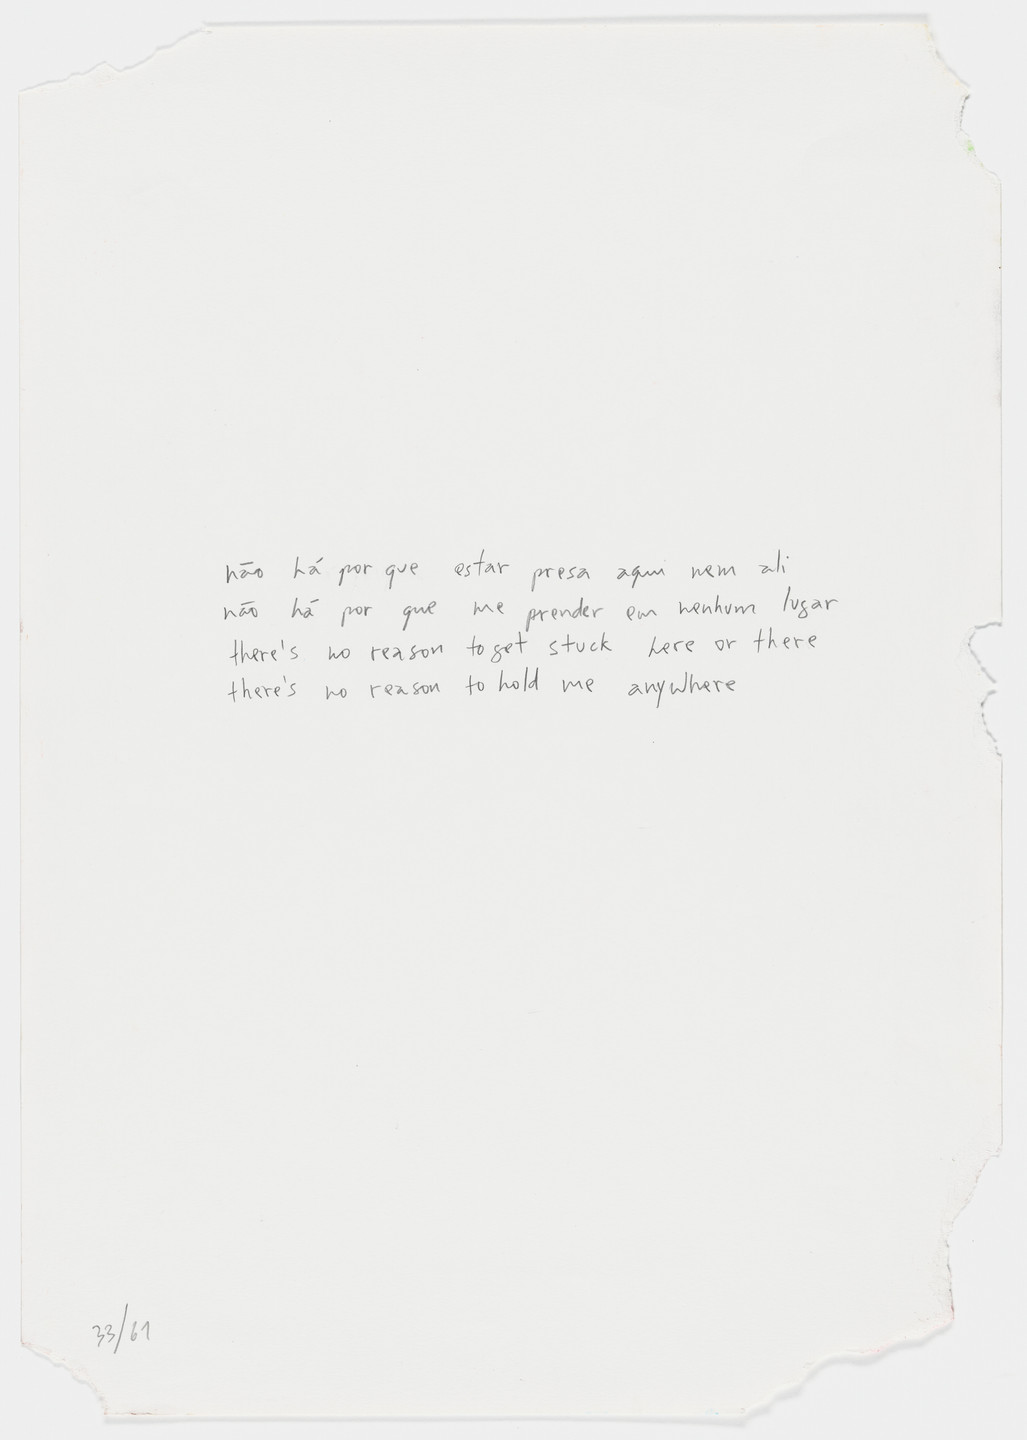 não há por que estar presa aqui nem ali
não há por que me prender em nenhum lugar
there's no reason to get stuck here or there
there's no reason to hold me anywhere
33/61